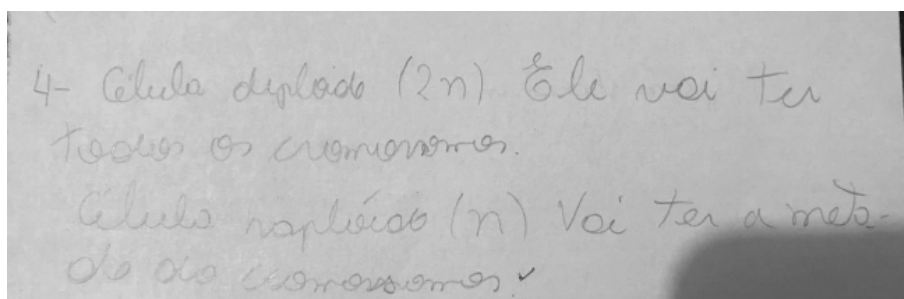 4- Célula diploide (2n) Ele vai ter
todos os cromossomos.
Célula haplóide (n) Vai ter a meta-
de do cromossomos.